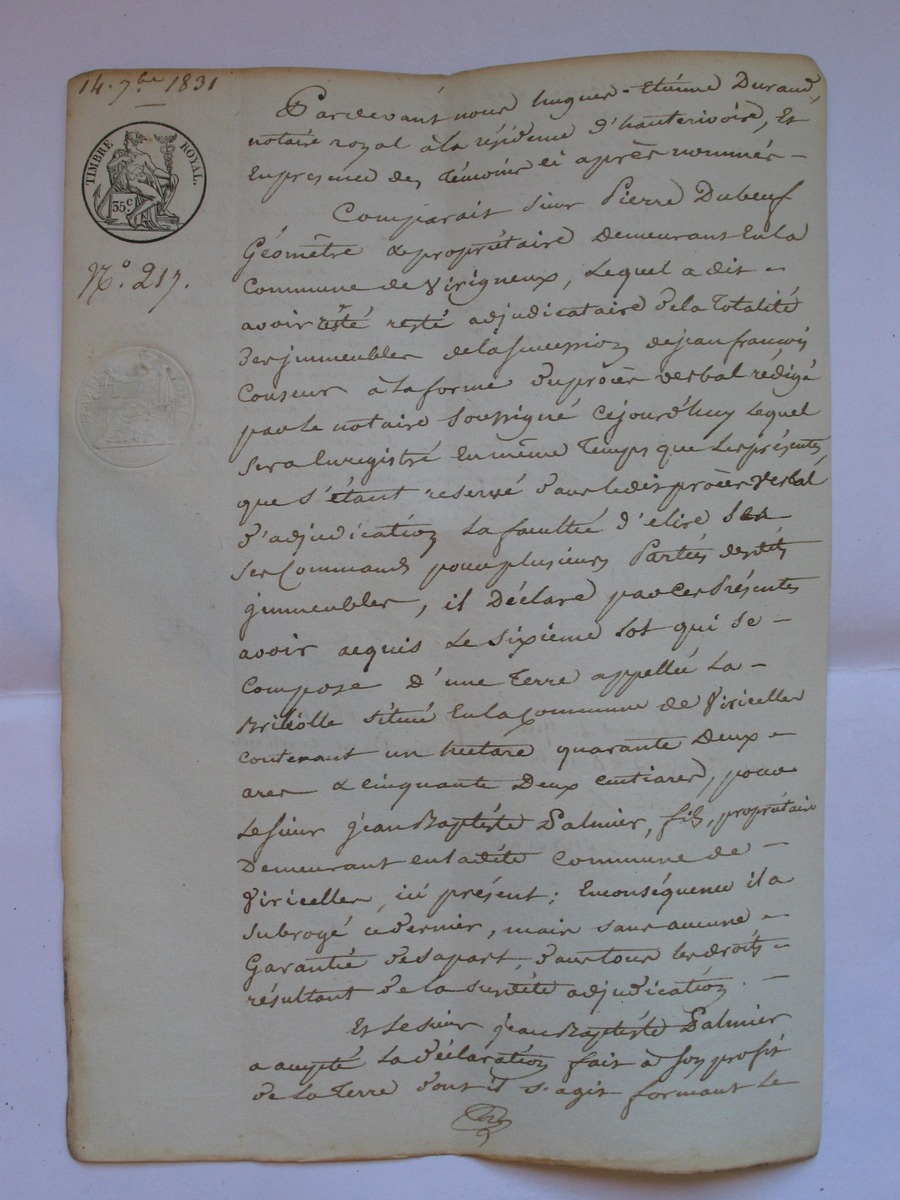 14. 7bre 1831
TIMBRE ROYAL.
35c
No. 217.
Pardevant nous hugues-Etienne Durand,
notaire royal à la résidence d'hauterivoire, Et
En presence des témoins ci après nommés -
Comparait sieur Pierre Dubeuf
Géomètre & propriétaire Demeurant En la
Commune de Virigneux, Lequel a dit -
avoir été resté adjudicataire de la Totalité
Des jmmeubles de la succession de jean françois
Couseur à la forme du procès verbal rédigé
par Le notaire Soussigné Cejourd'huy Lequel
Sera Enregistré En même Temps que Les présentes,
que s'étant reservé dans ledit procès Verbal
D'adjudication La faculté d'elire
Ses Commands pour plusieurs Parties desdits
jmmeubles, il Déclare par Ces Présentes
avoir acquis Le Sixième Lot qui se -
Compose d'une Terre appellée La -
située En la Commune de Viricelles
Contenant un hectare quarante Deux -
ares & Cinquante Deux Centiares, pour
Le Sieur jean Baptiste Palmier, fils, propriétaire
Demeurant en ladite Commune de -
Viricelles, ici présent; En conséquence il a
subrogé ce dernier, mais sans aucune -
Garantie de sa part, dans tous les droits -
résultant de la susdite adjudication. -
Et Le sieur jean Baptiste Palmier
a accepté La déclaration fait à Son profit
de La Terre dont il s'agit formant Le